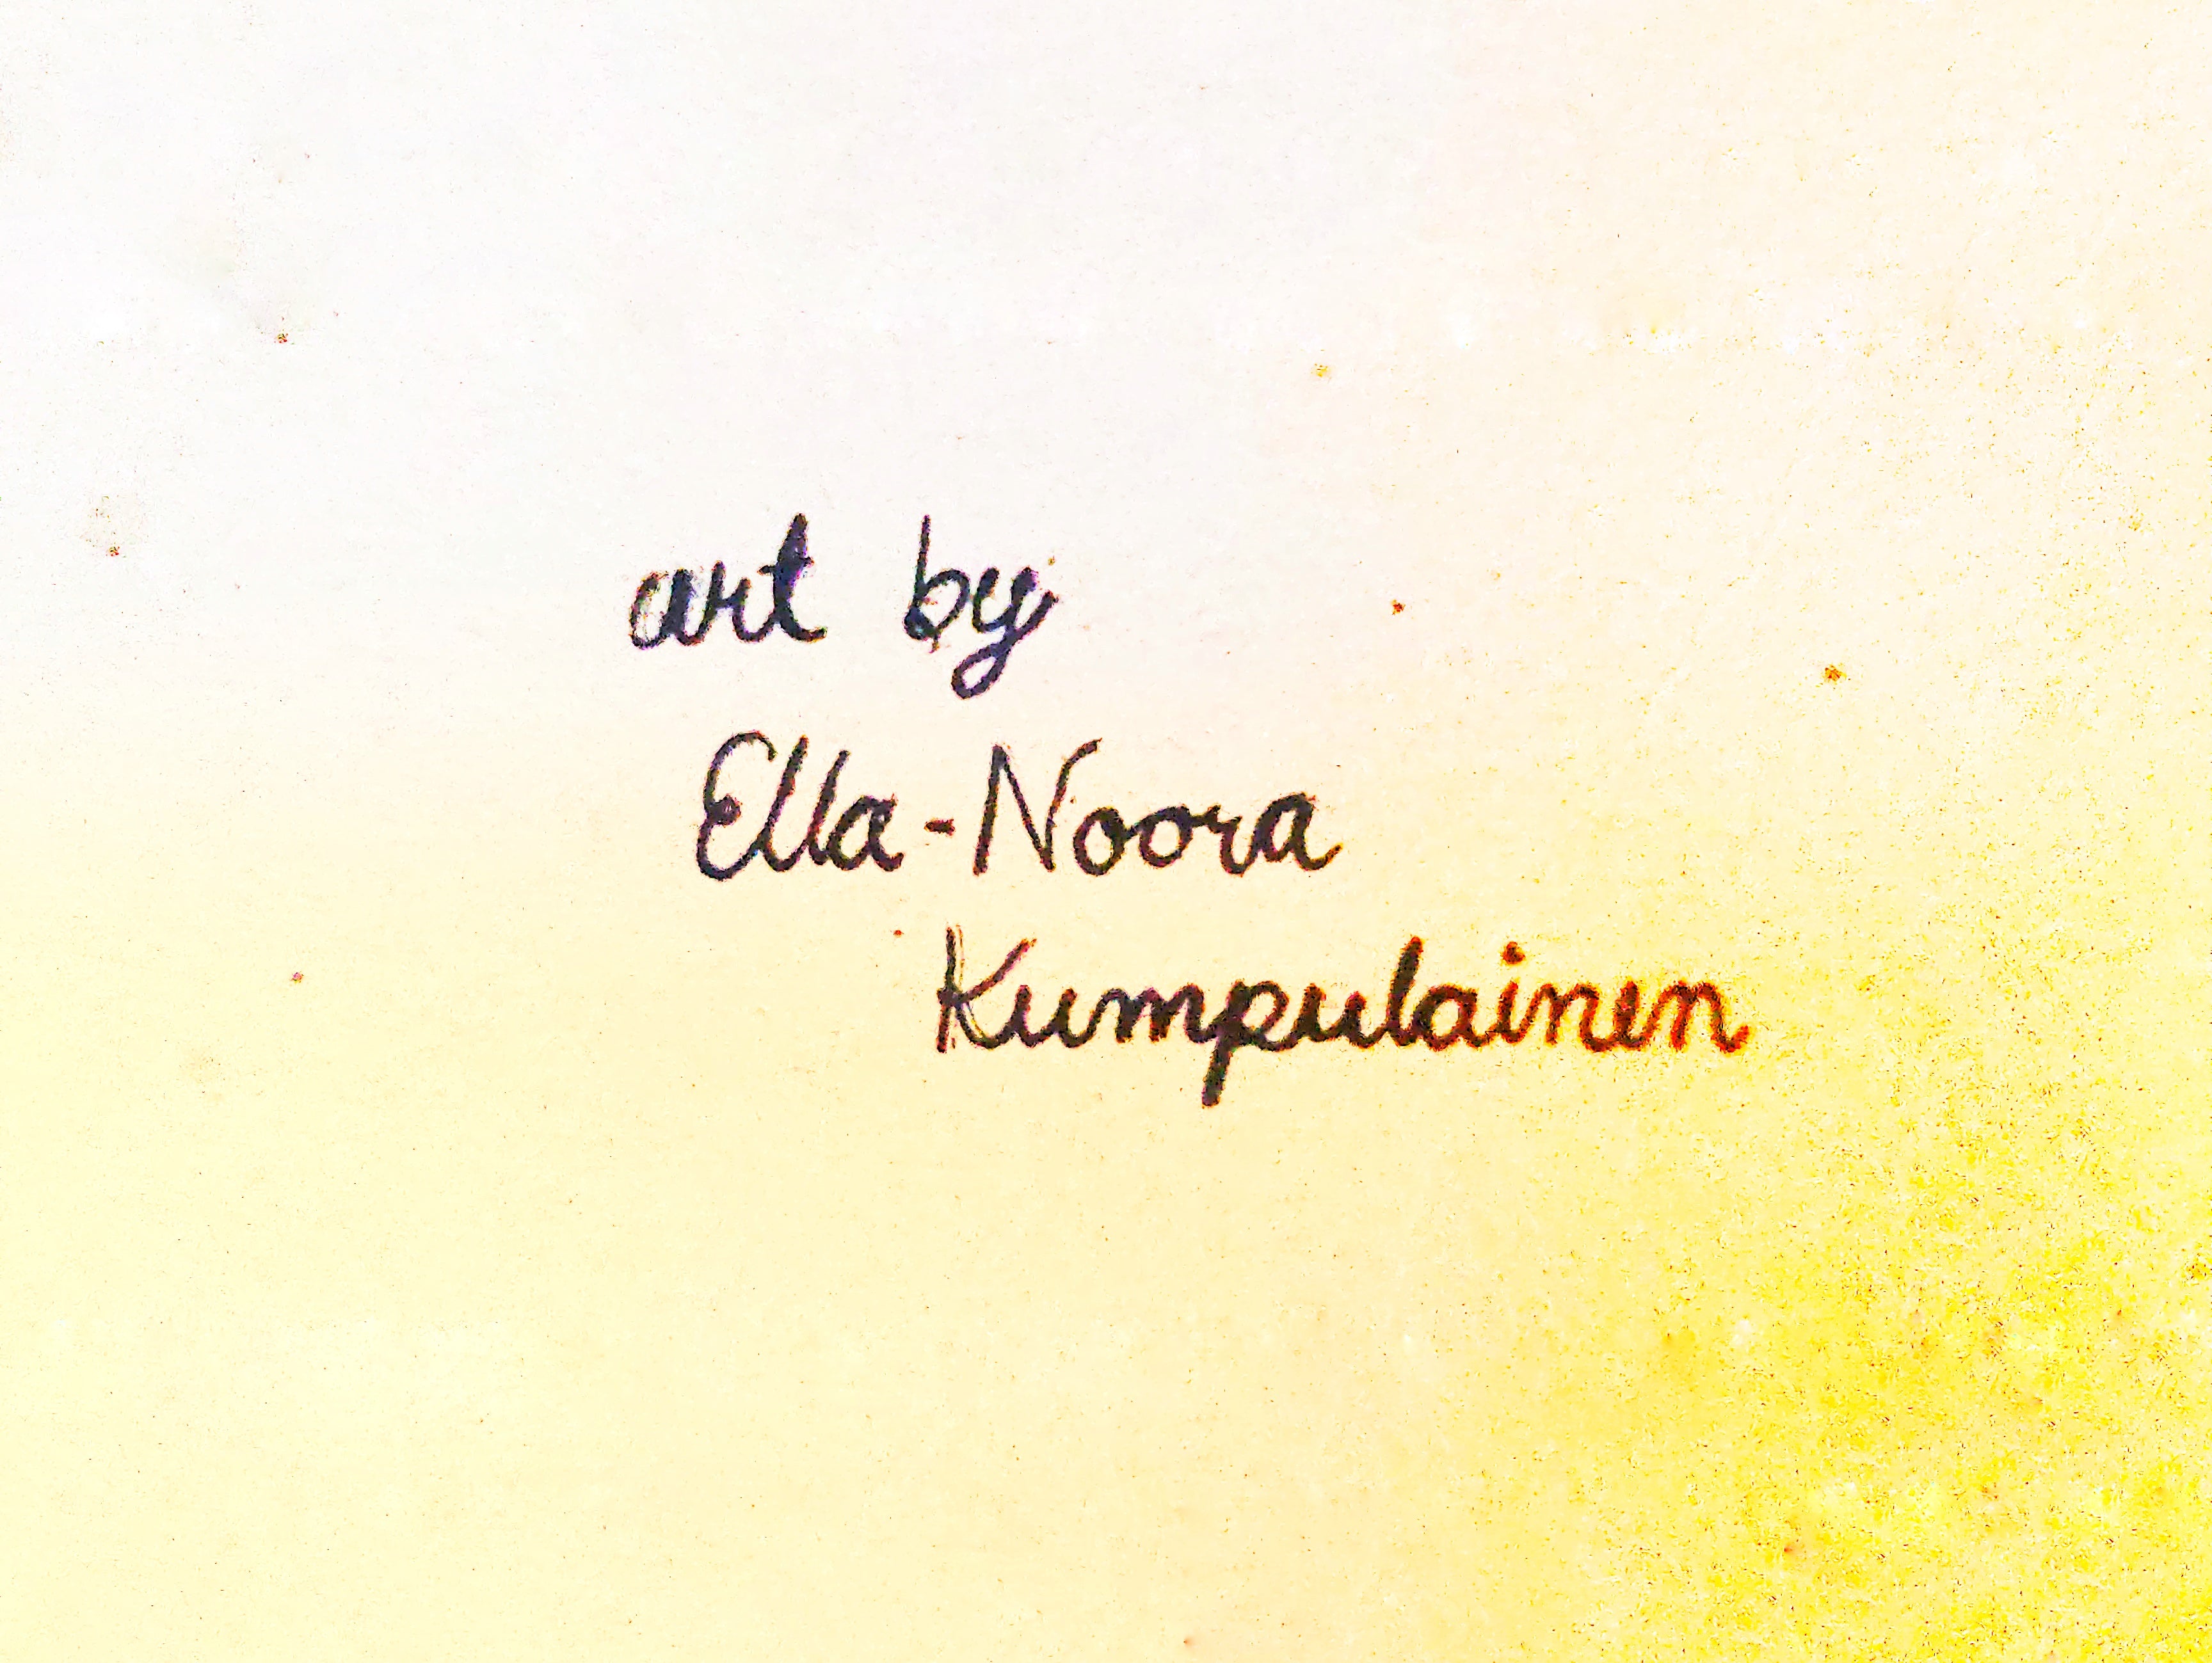 art by
Ella-Noora
Kumpulainen